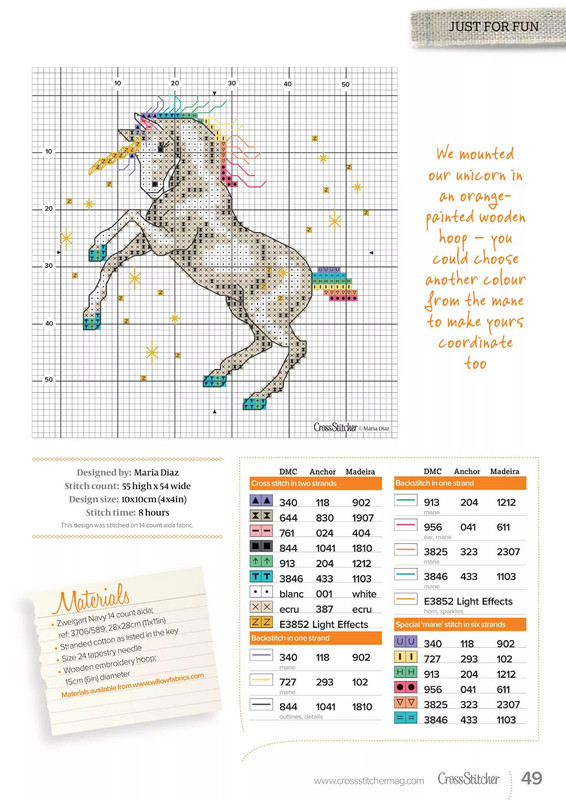 JUST FOR FUN
10 20 30 40 50
10
20
30
40
50
CrossStitcher © Maria Diaz
We mounted
our unicorn in
an orange-
painted wooden
hoop – you
could choose
another colour
from the mane
to make yours
coordinate
too
Designed by: Maria Diaz
Stitch count: 55 high x 54 wide
Design size: 10x10cm (4x4in)
Stitch time: 8 hours
This design was stitched on 14 count aida fabric.
Materials
• Zweigart Navy 14 count aida;
ref: 3706/589; 28x28cm (11x11in)
• Stranded cotton as listed in the key
• Size 24 tapestry needle
• Wooden embroidery hoop;
15cm (6in) diameter
Materials available from www.willowfabrics.com
DMC Anchor Madeira
Cross stitch in two strands
340 118 902
644 830 1907
761 024 404
844 1041 1810
913 204 1212
3846 433 1103
blanc 001 white
ecru 387 ecru
E3852 Light Effects
Backstitch in one strand
340 118 902
mane
727 293 102
mane
844 1041 1810
outlines, details
DMC Anchor Madeira
Backstitch in one strand
913 204 1212
mane
956 041 611
ear, mane
3825 323 2307
mane
3846 433 1103
mane
E3852 Light Effects
horn, sparkles
Special 'mane' stitch in six strands
340 118 902
727 293 102
913 204 1212
956 041 611
3825 323 2307
3846 433 1103
www.crossstitchermag.com CrossStitcher 49